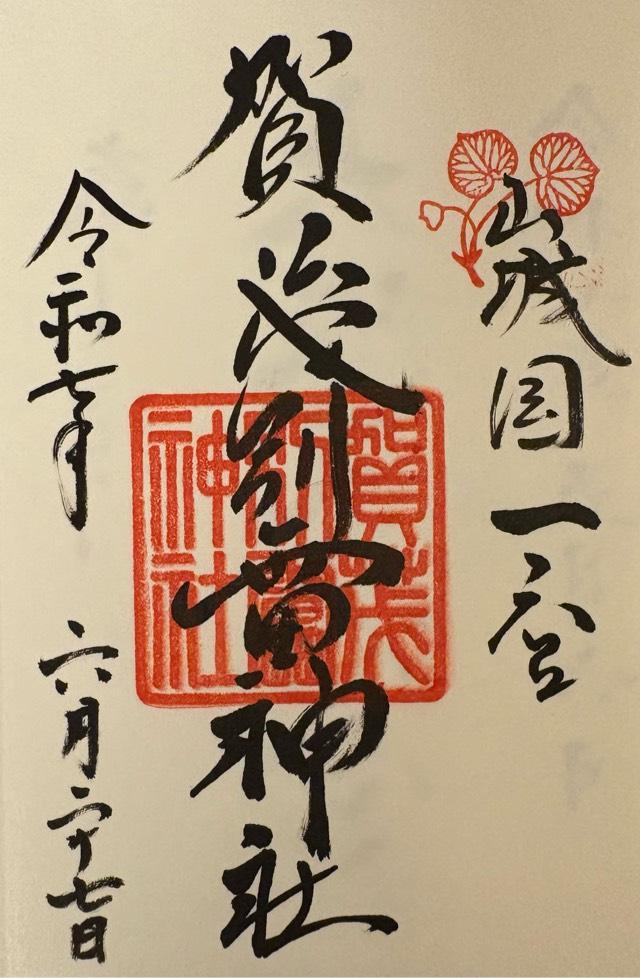 山城国一之宮
賀茂別雷神社
賀茂別雷神社
令和七年 六月二十七日